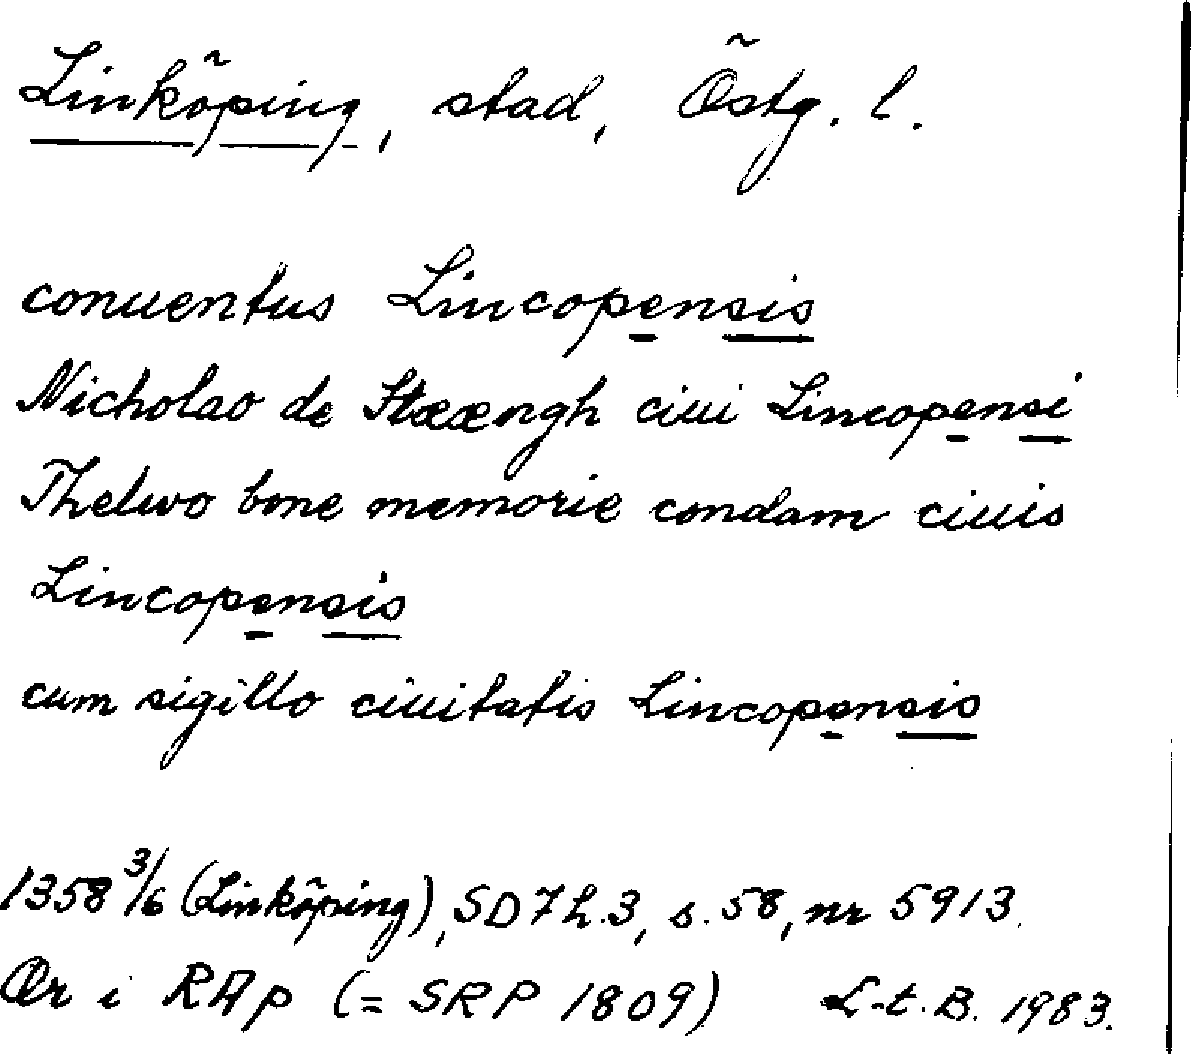 Linköping, stad, Östg. l.
conuentus Lincopensis
Nicholao de Stæængh ciui Lincopensi
Thelwo bone memorie condam ciuis
Lincopensis
cum sigillo ciuitatis Lincopensis
1358 3/6 (Linköping), SD 7 h. 3, s. 58, nr 5913.
Or i RAp (= SRP 1809) L-t. B. 1983.